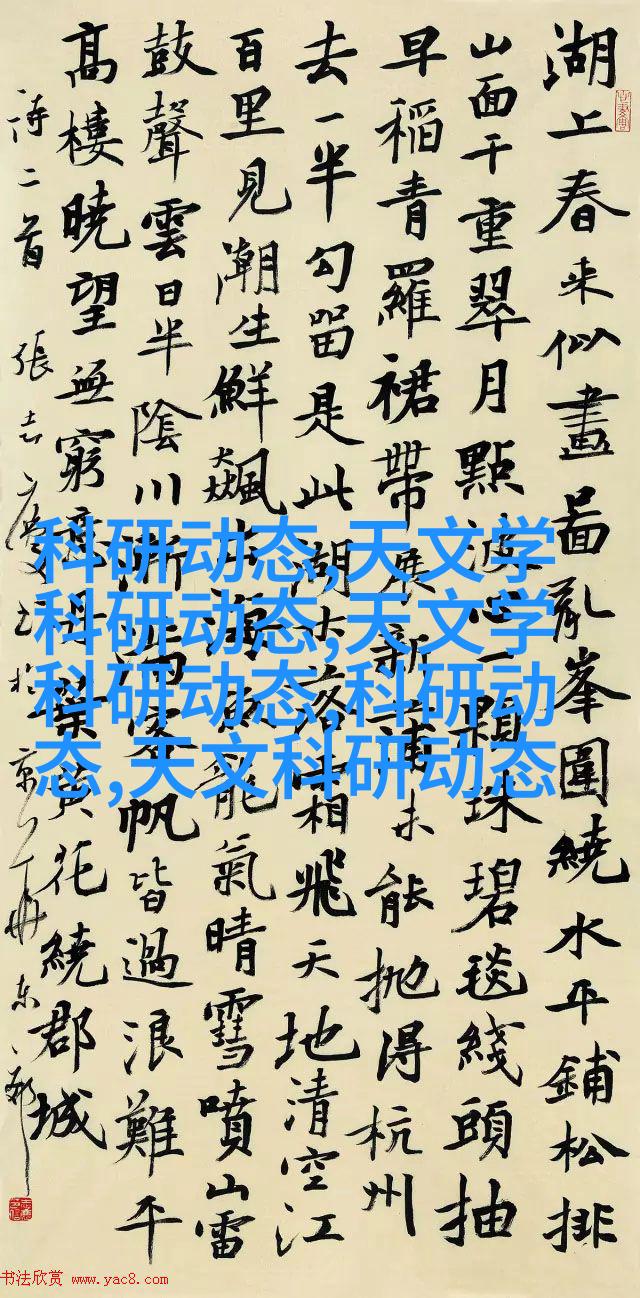 湖上春来似畫啚乱峯圍繞水平鋪松排
山面千重翠月點波心一顆珠碧毯綫頭抽
早稻青羅裙帶展新蒲未能抛得杭州
去一半勾留是此湖木落霜飛天地清空江
百里見潮生鮮飈出海魚龍氣晴雪噴山雷
鼓聲雲日半陰川漸滿客帆皆過浪難平
高樓曉望無窮意丹葉黄花繞郡城
詩二首 張志慶書於京
科研动态,天文学
科研动态,天文学
科研动态,科研动
态,天文科研动态
书法欣赏 www.yac8.com